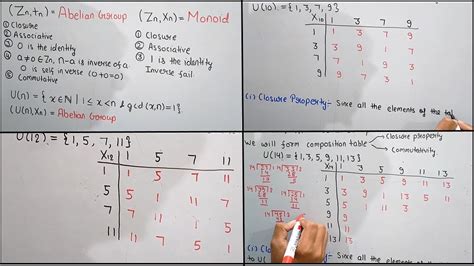 (Zn,+n) = Abelian Group
① Closure
② Associative
③ 0 is the identity
④ a≠0∈Zn, n-a is inverse of a
0 is self inverse (0+0=0)
⑤ Commutative
(Zn,Xn) = Monoid
① Closure
② Associative
③ 1 is the Identity
Inverse fail.
U(n) = {x∈N | 1≤x<n & gcd(x,n)=1}
(U(n),Xn) = Abelian Group
U(10) = {1, 3, 7, 9}
X10 1 3 7 9
1 1 3 7 9
3 3 9 1 7
7 7 1 9 3
9 9 7 3 1
(i) Closure Property:- Since all the elements of the
U(12) = {1, 5, 7, 11}
X12 1 5 7 11
1 1 5 7 11
5 5 1 11 7
7 7 11 1 5
11 11 7 5 1
We will form composition table
Closure property
Commutativity
U(14) = {1, 3, 5, 9, 11, 13}
X14 1 3 5 9 11 13
1 1 3 5 9 11 13
3 3 9 1 13 5 11
5 5 1 11 3 13
9 9
11 11
13 13
(i) Clo
to U(